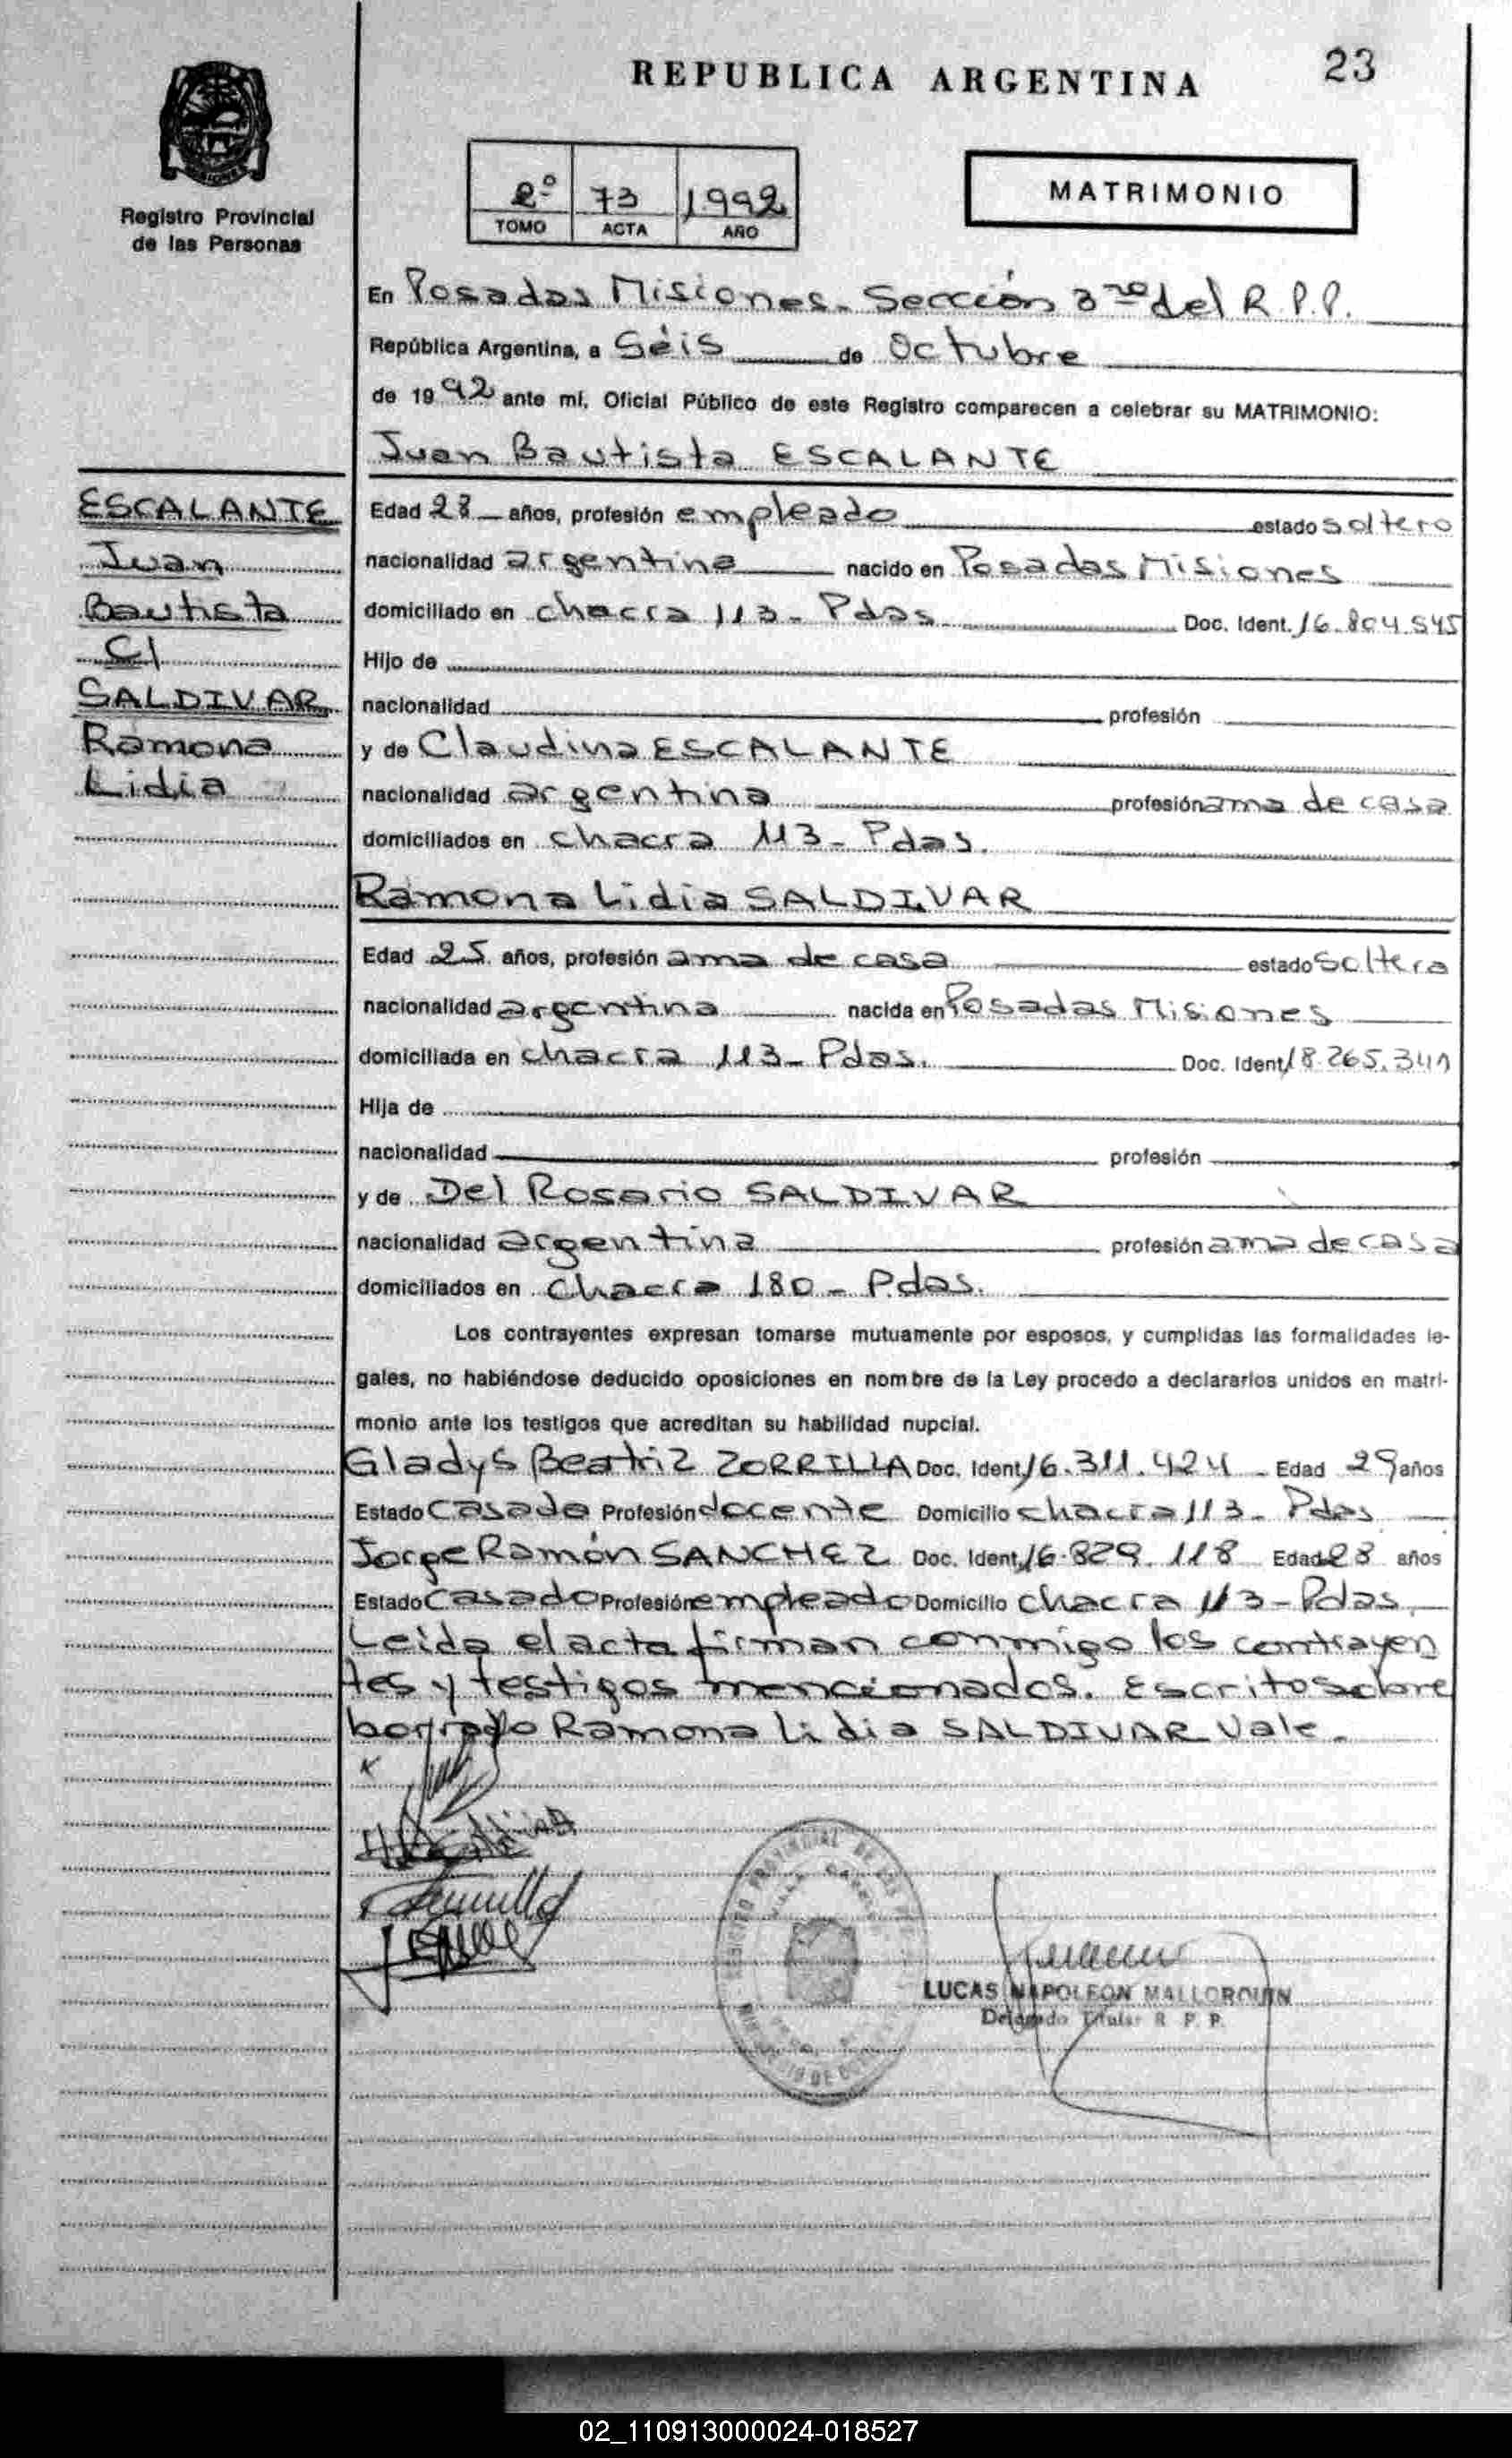 23
REPUBLICA ARGENTINA
Registro Provincial
de las Personas
2º 73 1992
TOMO ACTA AÑO
MATRIMONIO
En Posadas Misiones - Sección 3ra del R.P.P.
República Argentina, a Séis de Octubre
de 1992 ante mí, Oficial Público de este Registro comparecen a celebrar su MATRIMONIO:
Juan Bautista ESCALANTE
ESCALANTE
Juan
Bautista
C/
SALDIVAR
Ramona
Lidia
Edad 28 años, profesión empleado estado soltero
nacionalidad argentina nacido en Posadas Misiones
domiciliado en chacra 113 - Pdas Doc. Ident. 16.804.545
Hijo de
nacionalidad profesión
y de Claudina ESCALANTE
nacionalidad argentina profesión ama de casa
domiciliados en chacra 113 - Pdas.
Ramona Lidia SALDIVAR
Edad 25 años, profesión ama de casa estado soltera
nacionalidad argentina nacida en Posadas Misiones
domiciliada en chacra 113 - Pdas. Doc. Ident. 18.265.341
Hija de
nacionalidad profesión
y de Del Rosario SALDIVAR
nacionalidad argentina profesión ama de casa
domiciliados en Chacra 180 - Pdas.
Los contrayentes expresan tomarse mutuamente por esposos, y cumplidas las formalidades le-
gales, no habiéndose deducido oposiciones en nombre de la Ley procedo a declararlos unidos en matri-
monio ante los testigos que acreditan su habilidad nupcial.
Gladys Beatriz ZORRILLA Doc. Ident. 16.311.424 - Edad 29 años
Estado Casada Profesión docente Domicilio chacra 113 - Pdas
Jorge Ramón SANCHEZ Doc. Ident. 16.829.118 Edad 28 años
Estado Casado Profesión empleado Domicilio chacra 113 - Pdas.
Leida el acta firman conmigo los contrayen
tes y testigos mencionados. Escrito sobre
borrado Ramona Lidia SALDIVAR Vale.
LUCAS NAPOLEON MALLORQUIN
Delegado Titular R. P. P.
02_110913000024-018527